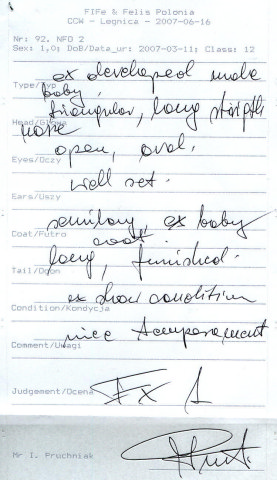 FIFe & Felis Polonia
CCW - Legnica - 2007-06-16
Nr: 92. NFO 2
Sex: 1,0; DoB/Data_ur: 2007-03-11; Class: 12
ex developed male
Type/Typ
baby.
triangular, long straight
Head/Głowa
nose
open, oval.
Eyes/Oczy
well set.
Ears/Uszy
semilong, ex baby
Coat/Futro
coat.
long, furnished.
Tail/Ogon
ex show condition
Condition/Kondycja
nice temperament
Comment/Uwagi
Judgement/Ocena
Ex 1
Mr I. Pruchniak